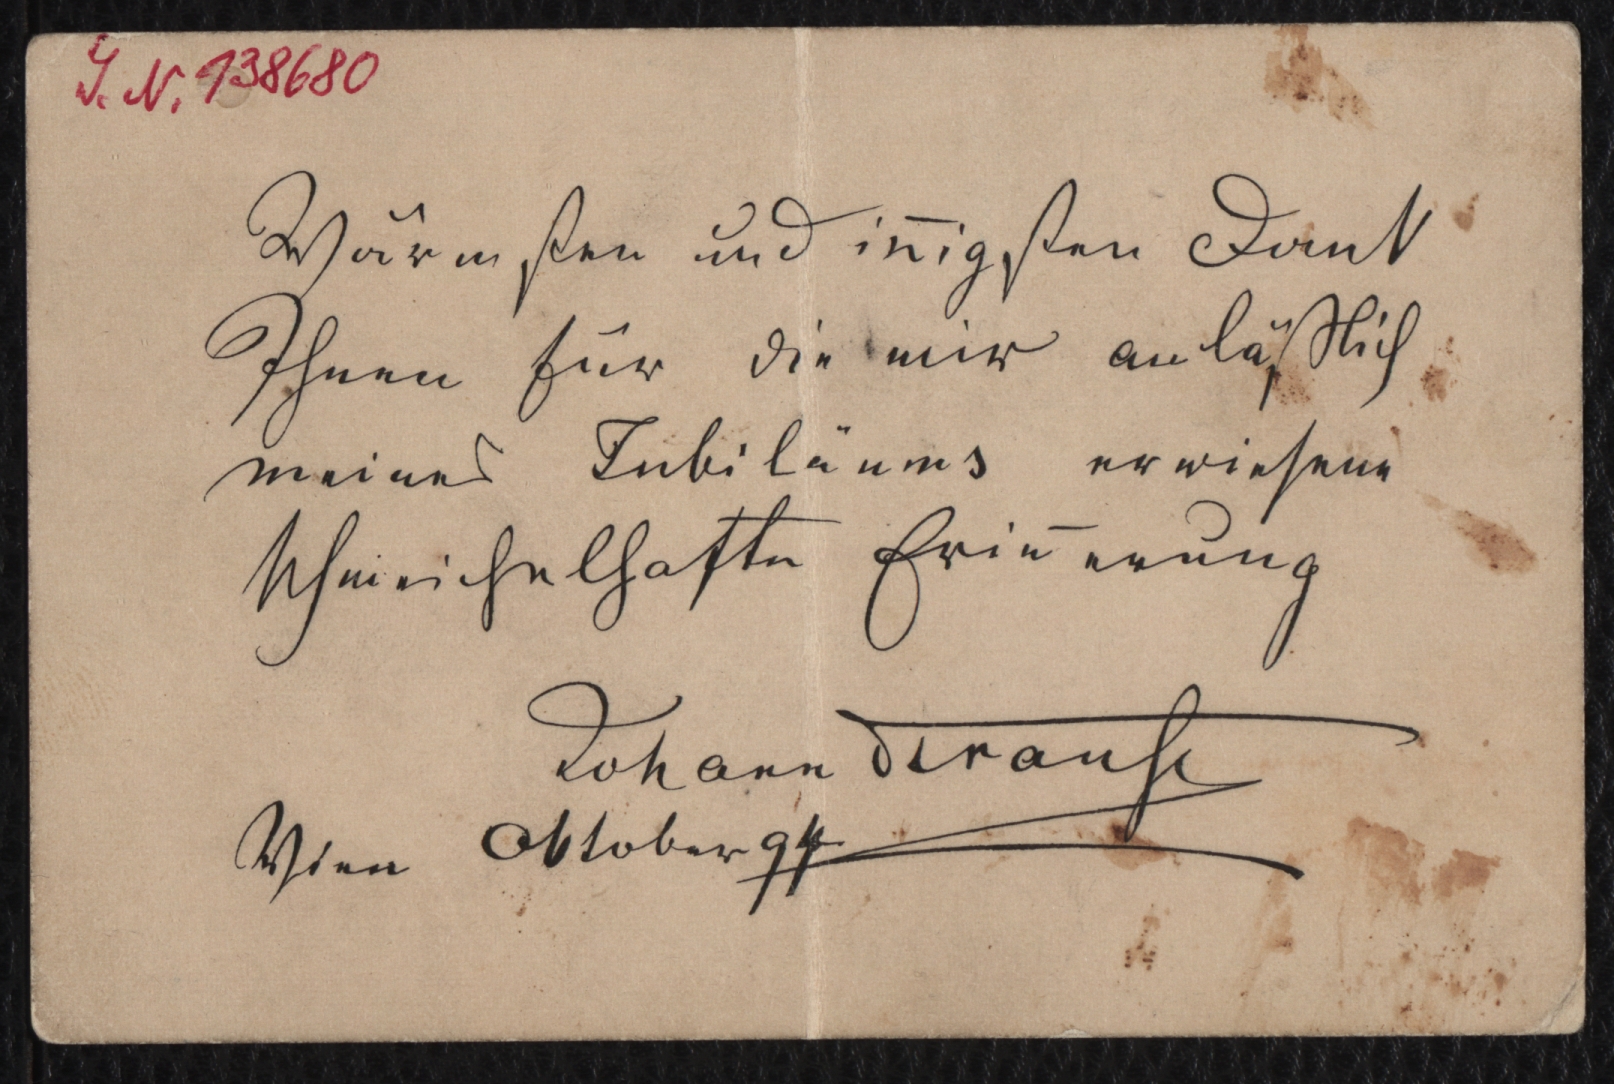 I. N. 138680
Wärmsten und in̅igsten Dank
Ihnen für die mir anläßlich
meines Jubiläums erwiesene
schmeichelhafte Erin̅erung
Johann Strauss
Wien Oktober 94